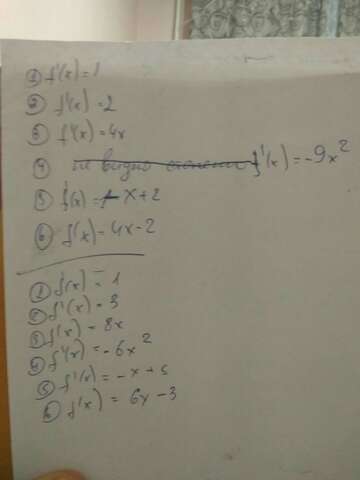 ① f'(x)=1
② f'(x)=2
③ f'(x)=4x
④ не видно степени f'(x)=-9x²
⑤ f'(x)= x+2
⑥ f'(x)=4x-2
① f'(x) = 1
② f'(x) = 3
③ f'(x) = 8x
④ f'(x) = -6x²
⑤ f'(x) = -x+5
⑥ f'(x) = 6x-3